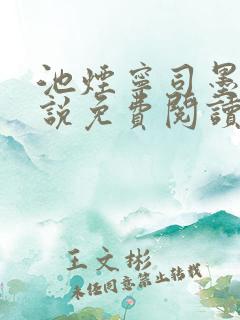 池煙寧司墨
說免費閱讀
王文彬
未任同意禁止转载